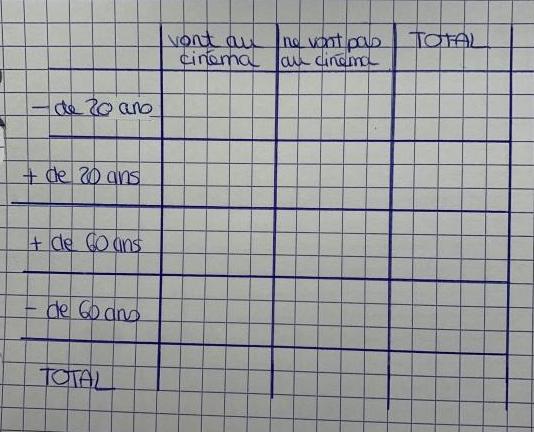 vont au ne vont pas TOTAL
cinéma au cinéma
- de 20 ans
+ de 20 ans
+ de 60 ans
- de 60 ans
TOTAL